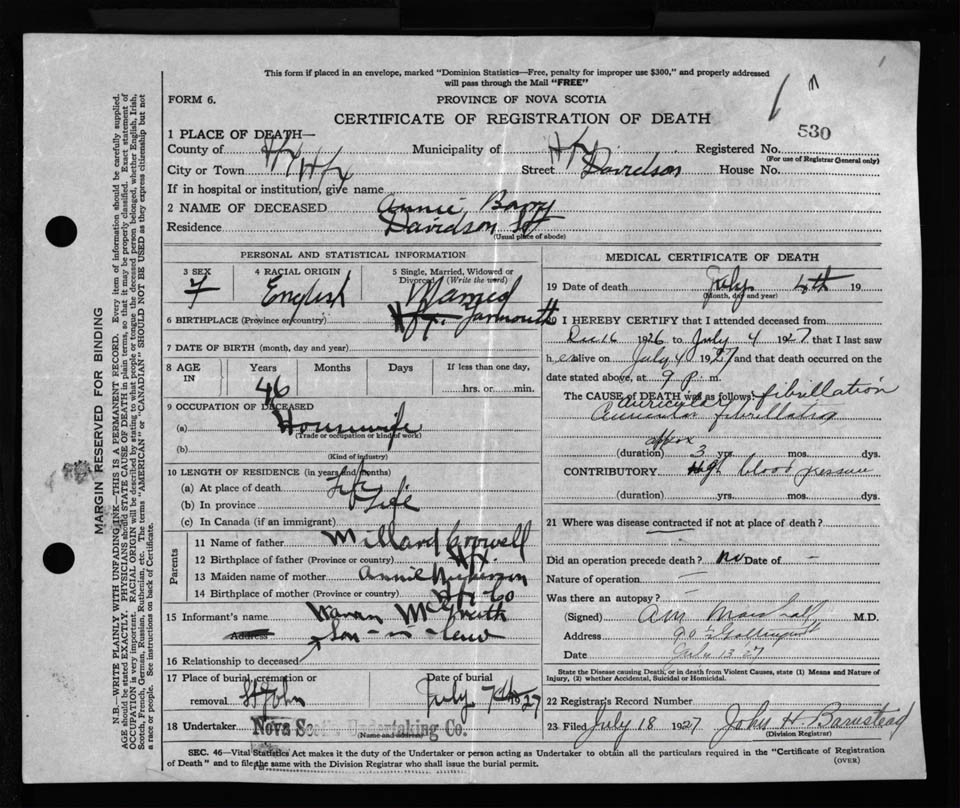 This form if placed in an envelope, marked "Dominion Statistics—Free, penalty for improper use $300," and properly addressed
will pass through the Mail "FREE"
FORM 6.
PROVINCE OF NOVA SCOTIA
CERTIFICATE OF REGISTRATION OF DEATH
530
1 PLACE OF DEATH—
County of Hfx Municipality of Hfx Registered No.
(For use of Registrar General only)
City or Town Hfx Street Davidson House No.
If in hospital or institution, give name
2 NAME OF DECEASED Annie Barry
Residence Davidson St
(Usual place of abode)
PERSONAL AND STATISTICAL INFORMATION
3 SEX
F
4 RACIAL ORIGIN
English
5 Single, Married, Widowed or Divorced (Write the word)
Married
6 BIRTHPLACE (Province or country) Yarmouth
7 DATE OF BIRTH (month, day and year)
8 AGE IN
Years Months Days If less than one day,
46
hrs. or min.
9 OCCUPATION OF DECEASED
(a) Housewife
(Trade or occupation or kind of work)
(b)
(Kind of industry)
10 LENGTH OF RESIDENCE (in years and months)
(a) At place of death Life
(b) In province Life
(c) In Canada (if an immigrant)
Parents
11 Name of father Millard Crowell
12 Birthplace of father (Province or country) Hfx.
13 Maiden name of mother Annie Nickerson
14 Birthplace of mother (Province or country) Hfx Co
15 Informant's name McGrath
Address
Son-in-law
16 Relationship to deceased
17 Place of burial, cremation or removal St John
Date of burial
July 7th 1927
18 Undertaker Nova Scotia Undertaking Co.
(Name and address)
MEDICAL CERTIFICATE OF DEATH
19 Date of death July 4th 19
(Month, day and year)
20 I HEREBY CERTIFY that I attended deceased from
Dec 16 1926 to July 4 1927 that I last saw
her alive on July 4 1927 and that death occurred on
date stated above, at 9 p. m.
The CAUSE OF DEATH was as follows:
auricular fibrillation
Auricular fibrillation
approx
(duration) 3 yrs. mos. dys.
CONTRIBUTORY High blood pressure
(duration) yrs. mos. dys.
21 Where was disease contracted if not at place of death?
Did an operation precede death? no Date of —
Nature of operation —
Was there an autopsy? —
(Signed) Marshall M.D.
Address
Date July 13 27
State the Disease causing Death, or in Death from Violent Causes, state (1) Means and Nature of
Injury, (2) whether Accidental, Suicidal or Homicidal.
22 Registrar's Record Number
23 Filed July 18 1927 John H Barnstead
(Division Registrar)
SEC. 46—Vital Statistics Act makes it the duty of the Undertaker or person acting as Undertaker to obtain all the particulars required in the "Certificate of Registration
of Death" and to file the same with the Division Registrar who shall issue the burial permit.
(OVER)
MARGIN RESERVED FOR BINDING
N.B.—WRITE PLAINLY WITH UNFADING INK—THIS IS A PERMANENT RECORD. Every item of information should be carefully supplied.
AGE should be stated EXACTLY. PHYSICIANS should STATE CAUSE OF DEATH in plain terms, so that it may be properly classified. Exact statement of
OCCUPATION is very important. RACIAL ORIGIN will be described by stating to what people or tongue the deceased person belonged, whether English, Irish,
Scotch, French, German, Russian, Ruthenian, etc. The terms "AMERICAN" or "CANADIAN" SHOULD NOT BE USED as they express citizenship but not
a race or people. See instructions on back of Certificate.